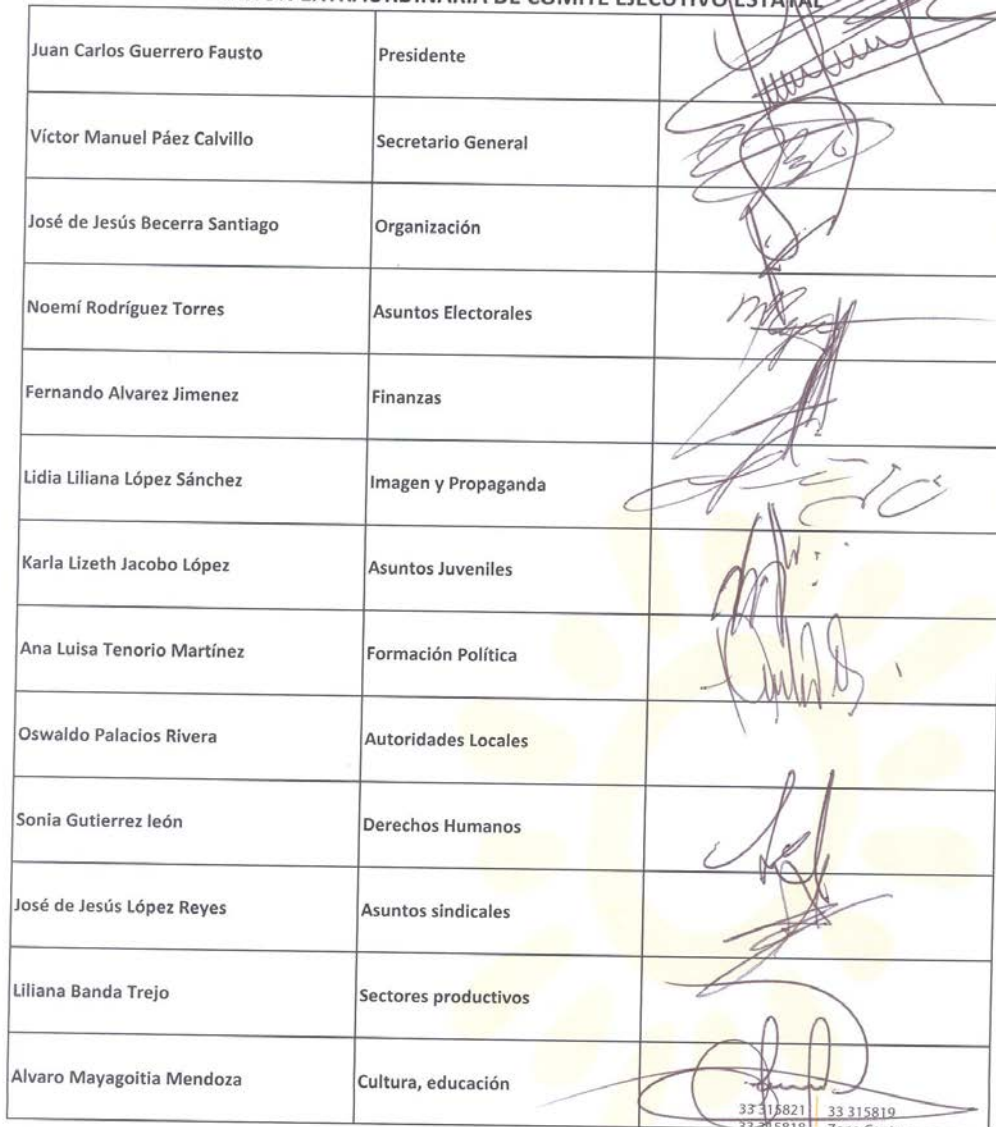 EXTRAORDINARIA DE COMITÉ EJECUTIVO ESTATAL
Juan Carlos Guerrero Fausto Presidente
Víctor Manuel Páez Calvillo Secretario General
José de Jesús Becerra Santiago Organización
Noemí Rodríguez Torres Asuntos Electorales
Fernando Alvarez Jimenez Finanzas
Lidia Liliana López Sánchez Imagen y Propaganda
Karla Lizeth Jacobo López Asuntos Juveniles
Ana Luisa Tenorio Martínez Formación Política
Oswaldo Palacios Rivera Autoridades Locales
Sonia Gutierrez león Derechos Humanos
José de Jesús López Reyes Asuntos sindicales
Liliana Banda Trejo Sectores productivos
Alvaro Mayagoitia Mendoza Cultura, educación
33 315821 33 315819